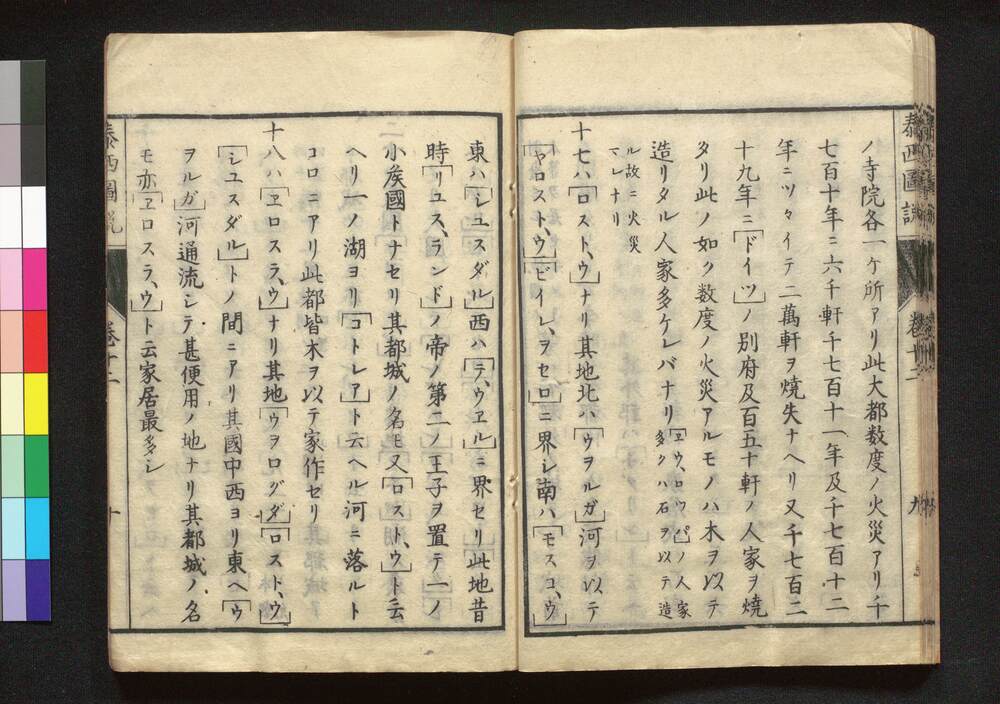 ノ寺院各一ケ所アリ此大都数度ノ火災アリ千
七百十年ニ六千軒千七百十一年及千七百十二
年ニツヽイテ二萬軒ヲ燒失ナヘリ又千七百二
十九年ニ「ドイツ」ノ別府及百五十軒ノ人家ヲ燒
タリ此ノ如ク数度ノ火災アルモノハ木ヲ以テ
造リタル人家多ケレバナリ「ヱウ、ロウパ」ノ人家
多クハ石ヲ以テ造
ル故ニ火災
マレナリ
十七ハ「ロスト、ウ」ナリ其地北ハ「ウヲルガ」河ヲ以テ
「ヤロスト、ウ」「ビイレ、ヲセロ」ニ界シ南ハ「モスコ、ウ」
泰西圖説
九
東ハ「シユスダル」西ハ「テ、ウヱル」ニ界セリ此地昔
時「リユス、ランド」ノ帝ノ第二ノ王子ヲ置テ一ノ
小矦國トナセリ其都城ノ名モ又「ロスト、ウ」ト云
ヘリ一ノ湖ヨリ「コトレア」ト云ヘル河ニ落ルト
コロニアリ此都皆木ヲ以テ家作セリ
十八ハ「ヱロスラ、ウ」ナリ其地「ウヲログダ」「ロスト、ウ」
「シユスダル」トノ間ニアリ其國中西ヨリ東ヘ「ウ
ヲルガ」河通流シテ甚便用ノ地ナリ其都城ノ名
モ亦「ヱロスラ、ウ」ト云家居最多シ
泰西圖説
卷十二
十